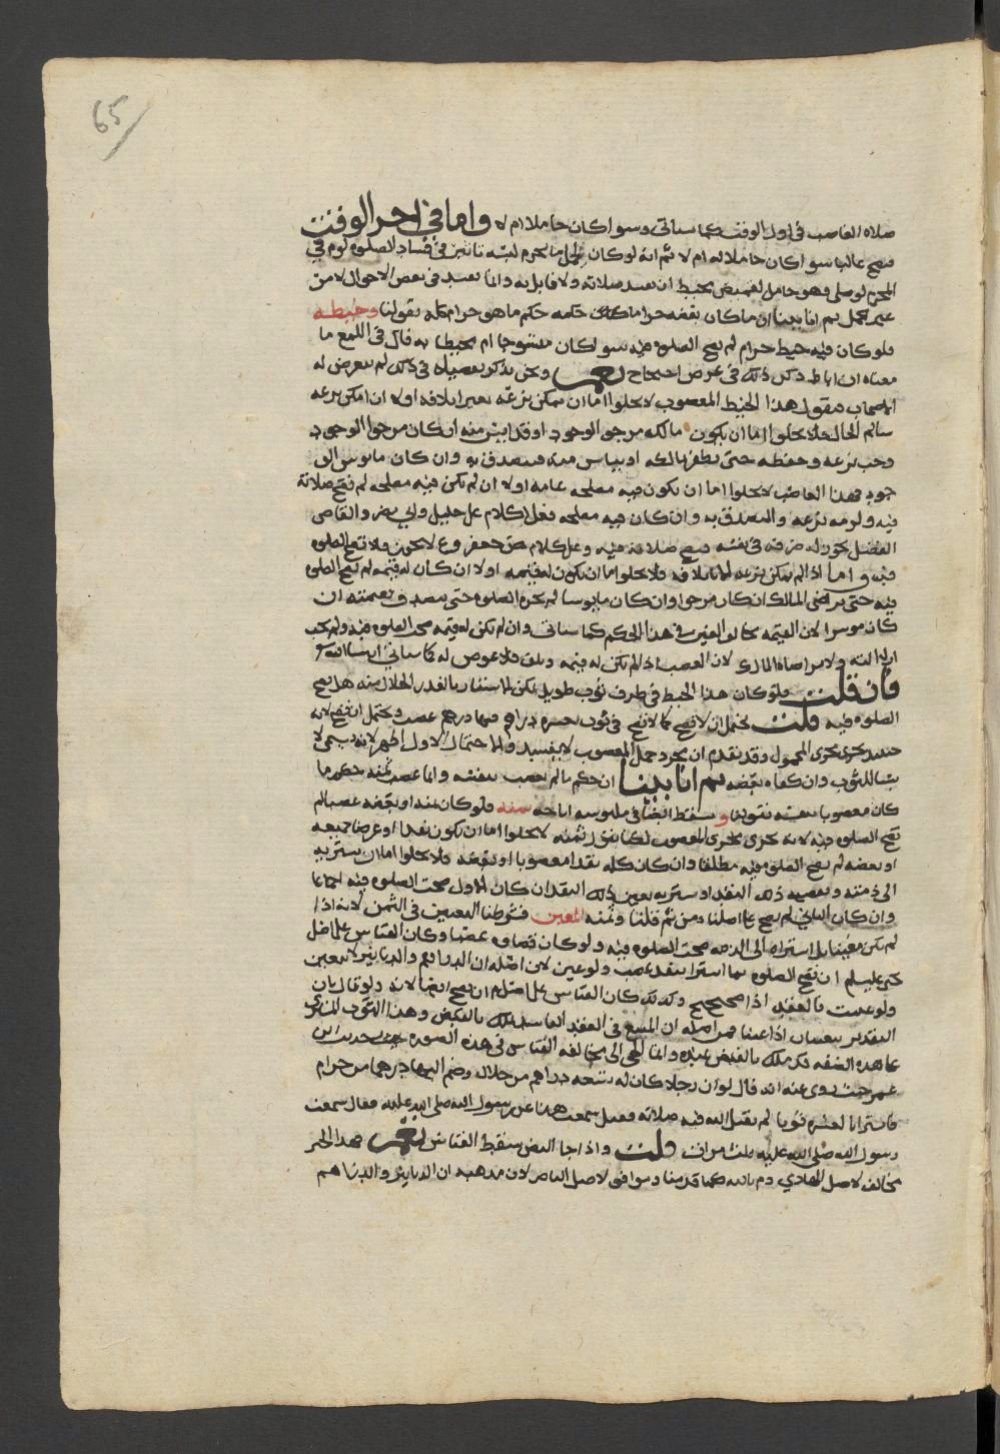 65
صلاه الغاصب فى اول الوقت كما سياتى وسوا كان حاملا ام لا واما فى اخر الوقت
فتصح عاليا سوا كان حاملا له ام لا ثم انه لو كان لحمل ما يحرم لبسه تاثير فى فساد الصلوه لزم فى
المحرم لو صلى وهو حامل لقميص مخيط ان تفسد صلاته ولا قايل به وانما تفسد فى بعض الاحوال لا من
غير حمل ثم انا بينا ان ما كان بعضه حراما كان حكمه حكم ما هو حرام كله بقولنا وخيطه
فلو كان فيه خيط حرام لم تصح الصلوه فيه سوا كان منسوجا ام مخيطا به قال فى اللمع ما
معناه ان اباط ذكر ذلك فى عرض احتجاج نعم ونحن نذكر تفصيلا فى ذلك لم يتعرض له
الاصحاب فنقول هذا الخيط المغصوب لا يخلوا اما ان يمكن نزعه بغير اتلافه اولا ان امكن نزعه
سالم الحال فلا يخلوا اما ان يكون مالكه مرجو الوجود او قد ايس منه ان كان مرجوا الوجود
وجب نزعه وحفظه حتى يظفر بمالكه او يياس منه فيتصدق به وان كان مايوس الو
جود فهذا الغاصب لا يخلوا اما ان يكون فيه مصلحه عامه اولا ان لم يكن فيه مصلحه لم تصح صلاته
فيه ولزمه نزعه والتصدق به وان كان فيه مصلحه فعلى كلام على خليل وابى مضر والقاضى
الفضل يجوز له صرفه فى نفسه فتصح صلاته فيه وعلى كلام ض جعفر وع لا يجوز ولا تصح الصلوه
فيه واما اذا لم يمكن نزعه الا باتلافه فلا يخلوا اما ان يكون له قيمه اولا ان كان له قيمه لم تصح الصلوه
فيه حتى يراضى المالك ان كان مرجوا وان كان مايوسا لم يجزه الصلوه حتى يتصدق بقيمته ان
كان موسرا لان القيمه تخالف العين فى هذا الحكم كما سياتى وان لم تكن له قيمه صحت الصلوه فيه ولم يجب
ازالته ولا مراضاه المالك لان الغصب اذا لم تكن له قيمه وتلف فلا عوض له كما سياتى ان شا الله
فان قلت فلو كان هذا الخيط فى طرف ثوب طويل يمكن الاستتار بالقدر الحلال منه هل تصح
الصلوه فيه قلت يحتمل ان لا تصح كما لا تصح فى ثوب بعشره دراهم فيها درهم غصب ويحتمل ان تصح لانه
حينئذ يجرى مجرى المحمول وقد تقدم ان مجرد حمل المغصوب لا يفسد والاحتمال الاول اظهر لانه يسمى لا
بسا للثوب وان كفاه بعضه ثم انا بينا ان حكم ما لم يغصب بنفسه وانما غصب ثمنه حكم ما
كان مغصوبا بنفسه بقولنا وسقط ايضا فى ملبوسه اباحه ثمنه فلو كان ثمنه او بعضه غصبا لم
تصح الصلوه فيه لانه يجرى مجرى المغصوب لكنا نقول ثمنه لا يخلوا اما ان يكون نقدا او عرضا جميعه
او بعضه لم تصح الصلوه فيه مطلقا وان كان كله نقدا مغصوبا او بعضه فلا يخلوا اما ان يشتريه
الى ذمته ويقضيه ذلك النقد او يشتريه بعين ذلك النقد ان كان الاول صحت الصلوه فيه اجماعا
وان كان الثانى لم تصح على اصلنا ومن ثم قلنا وثمنه المعين فشرطنا التعيين فى الثمن لانه اذا
لم يكن معينا بل اشتراه الى الذمه صحت الصلوه فيه ولو كان قضاوه غصبا وكان القياس على اصل
خبر عليلم ان تصح الصلوه فيما اشترا بنقد غصب ولو عين لان اصله ان الدراهم والدنانير لا تتعين
ولو عينت بالعقد اذا صحيح وكذلك كان القياس على اصل م ان تصح ايضا لانه ولو قال بان
النقدين يتعينان اذا عينا فمن اصله ان المبيع فى العقد الفاسد يملك بالقبض وهذا الثوب المشترى
على هذه الصفه قد ملك بالقبض عنده وانما الجى الى مخالفه القياس فى هذه الصوره خبر حديث ابن
عمر حيث روى عنه انه قال لو ان رجلا كان له تسعه دراهم من حلال وضم اليها درهما من حرام
فاشترا بالعشره ثوبا لم يقبل الله فيه صلاته فقيل سمعت هذا عن رسول الله صلى الله عليه فقال سمعت
رسول الله صلى الله عليه ثلث مرات قلت واذا جا النص سقط القياس نعم فهذا الخبر
مخالف لاصل الهادى وم بالله كما قدمنا وموافق لاصل الناصر لان مذهبه ان الدنانير والدراهم